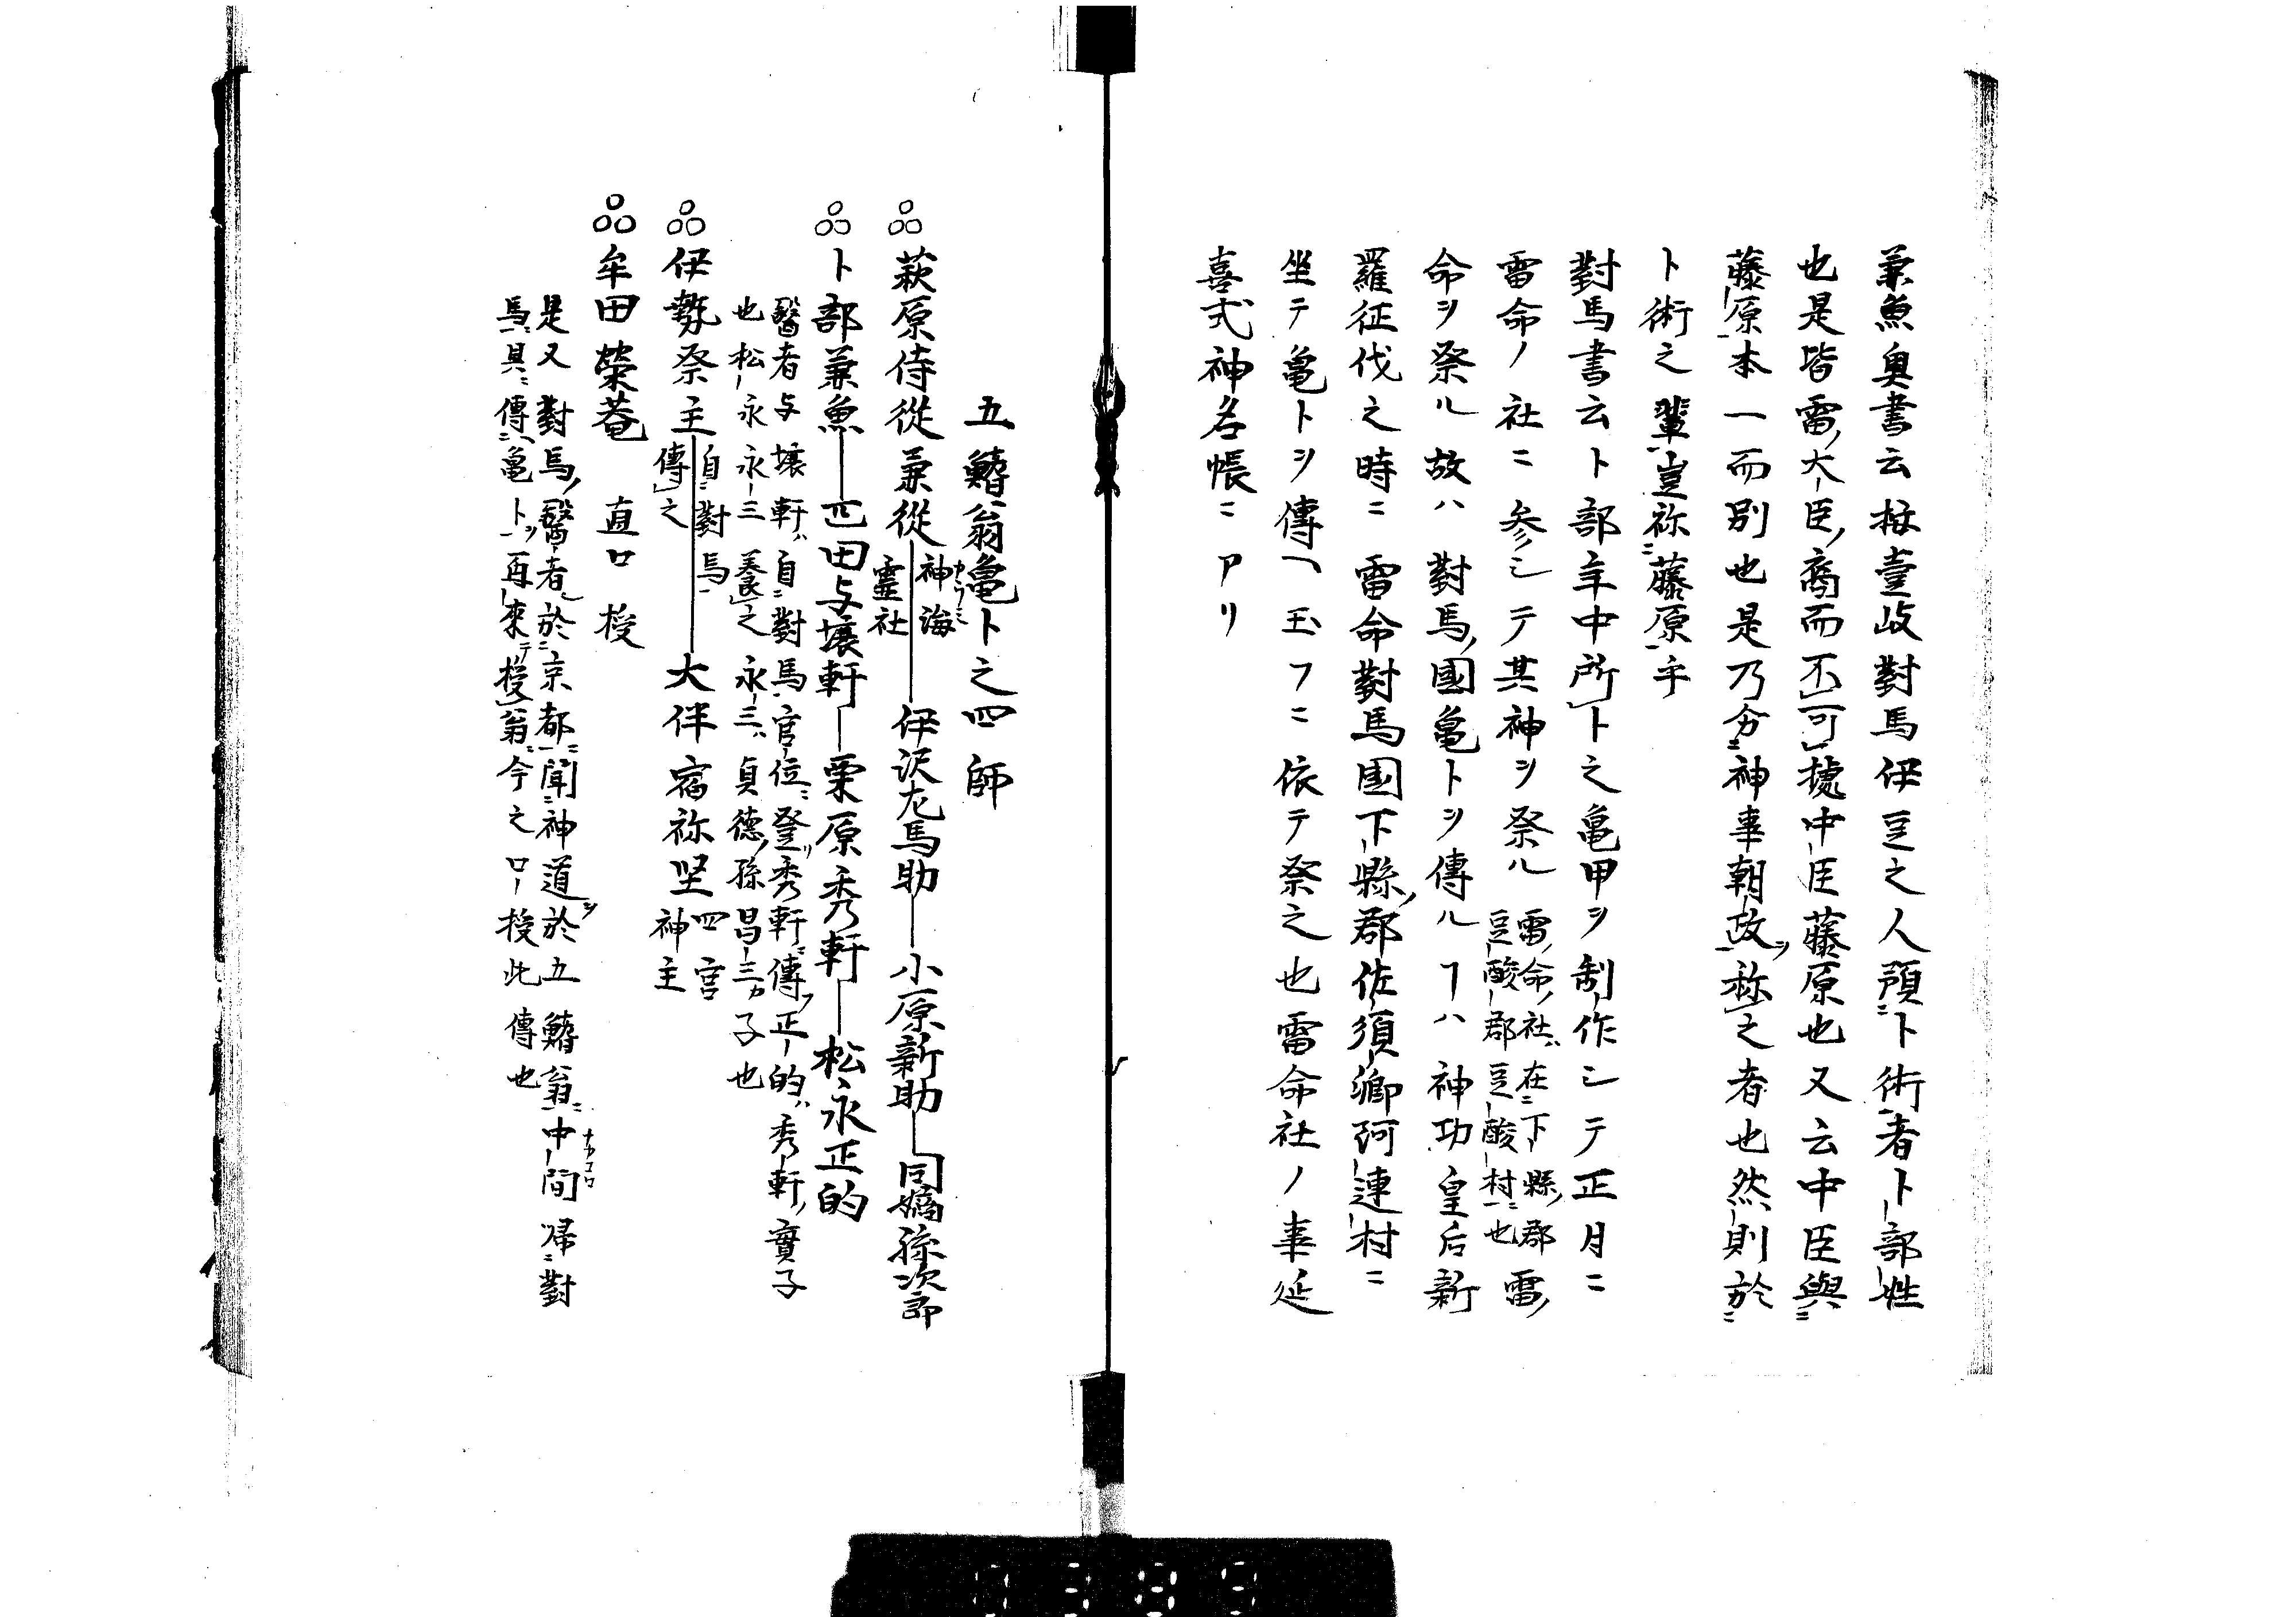 兼魚奥書云按壹岐對馬伊豆之人預ニ卜術一者卜部姓
也是皆雷大臣裔而不可據中臣藤原也又云中臣與ニ
藤原一本一而別也是乃分ニ神事朝政一称之者也然則於ニ
卜術之輩一豈祢ニ藤原一乎
對馬書云卜部年中所卜之亀甲ヲ制作シテ正月ニ
雷命ノ社ニ参シテ其神ヲ祭ル
雷命社ハ在ニ下縣郡
豆酸郡豆酸村一ニ也
雷
命ヲ祭ル故ハ對馬國亀卜ヲ傳ルヿハ神功皇后新
羅征伐之時ニ雷命對馬國下縣郡佐須郷阿連村ニ
坐テ亀卜ヲ傳ヘ玉フニ依テ祭之也雷命社ノ事延
喜式神名帳ニアリ
五鰭翁亀卜之四師
萩原侍従兼従
神海
霊社
伊沢左馬助 小原新助 同嫡孫次郎
卜部兼魚 匹田与壌軒 栗原秀軒 松永正的
醫者与壌軒ハ自ニ對馬一官位ニ登リ秀軒ニ傳フ正的ハ秀軒ノ實子
也松永永三養之永三ハ貞德ノ孫昌三カ子也
伊勢祭主
自ニ對馬一
傳之
大伴宿祢坚
四宮
神主
牟田榮菴 直口授
是又對馬ノ醫者於ニ京都一聞ニ神道ヲ於五鰭翁ニ中間帰ニ對
馬一ニ具ニ傳ニ亀卜一ヲ再來テ授翁ニ今之口授此傳也